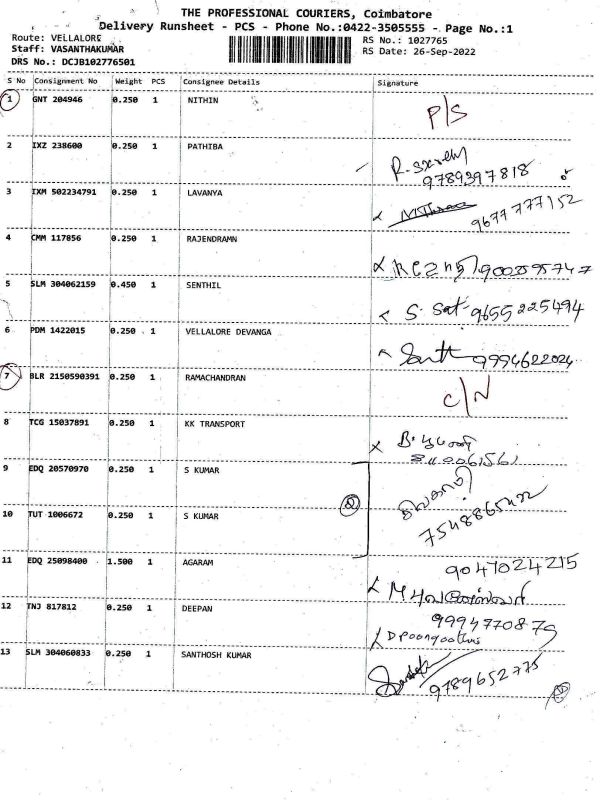 THE PROFESSIONAL COURIERS, Coimbatore
Delivery Runsheet - PCS - Phone No.:0422-3505555 - Page No.:1
Route: VELLALORE
RS No.: 1027765
Staff: VASANTHAKUMAR
RS Date: 26-Sep-2022
DRS No.: DCJB102776501
S No Consignment No Weight PCS Consignee Details Signature
1 GNT 204946 0.250 1 NITHIN P/S
2 IXZ 238600 0.250 1 PATHIBA
9789397818
3 IXM 502234791 0.250 1 LAVANYA
9677777152
4 CMM 117856 0.250 1 RAJENDRAMN
5 SLM 304062159 0.450 1 SENTHIL S. Sat 9655225494
6 PDM 1422015 0.250 1 VELLALORE DEVANGA 9994622024
7 BLR 2150590391 0.250 1 RAMACHANDRAN C/N
8 TCG 15037891 0.250 1 KK TRANSPORT
9 EDQ 20570970 0.250 1 S KUMAR
10 TUT 1006672 0.250 1 S KUMAR
7548865492
11 EDQ 25098400 1.500 1 AGARAM 9047024215
12 TNJ 817812 0.250 1 DEEPAN 9994770879
13 SLM 304060833 0.250 1 SANTHOSH KUMAR
9789652775